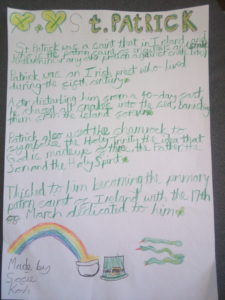 St. PATRICK
St Patrick was a saint that in Ireland and
Patrick was an Irish preist who lived
during the sixth century
After disturbing him from a 40-day fast,
he chased all snakes into the sea, banishing
them from the island
Patrick also used the shamrock to
symbolise the Holy Trinity the idea that
God is made up of three the Father the
Son and the Holy Spirit
This led to him becoming the primary
patron saint of Ireland with the 17th
of March dedicated to him
Made by